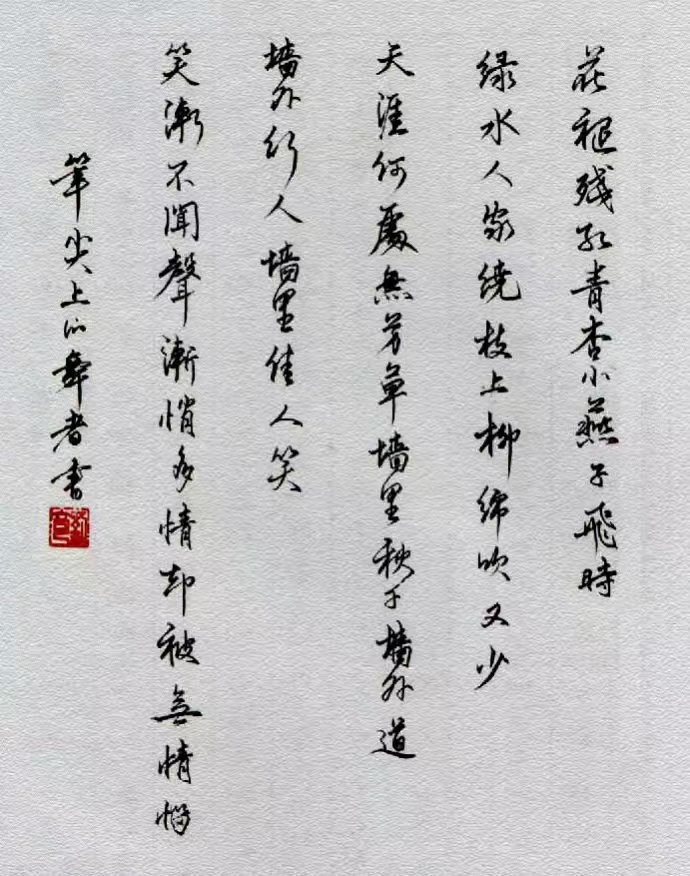 花褪残红青杏小燕子飛時
绿水人家绕枝上柳绵吹又少
天涯何處無芳草墙里秋千墙外道
墙外行人墙里佳人笑
笑漸不聞聲漸悄多情却被無情惱
筆尖上的舞者書